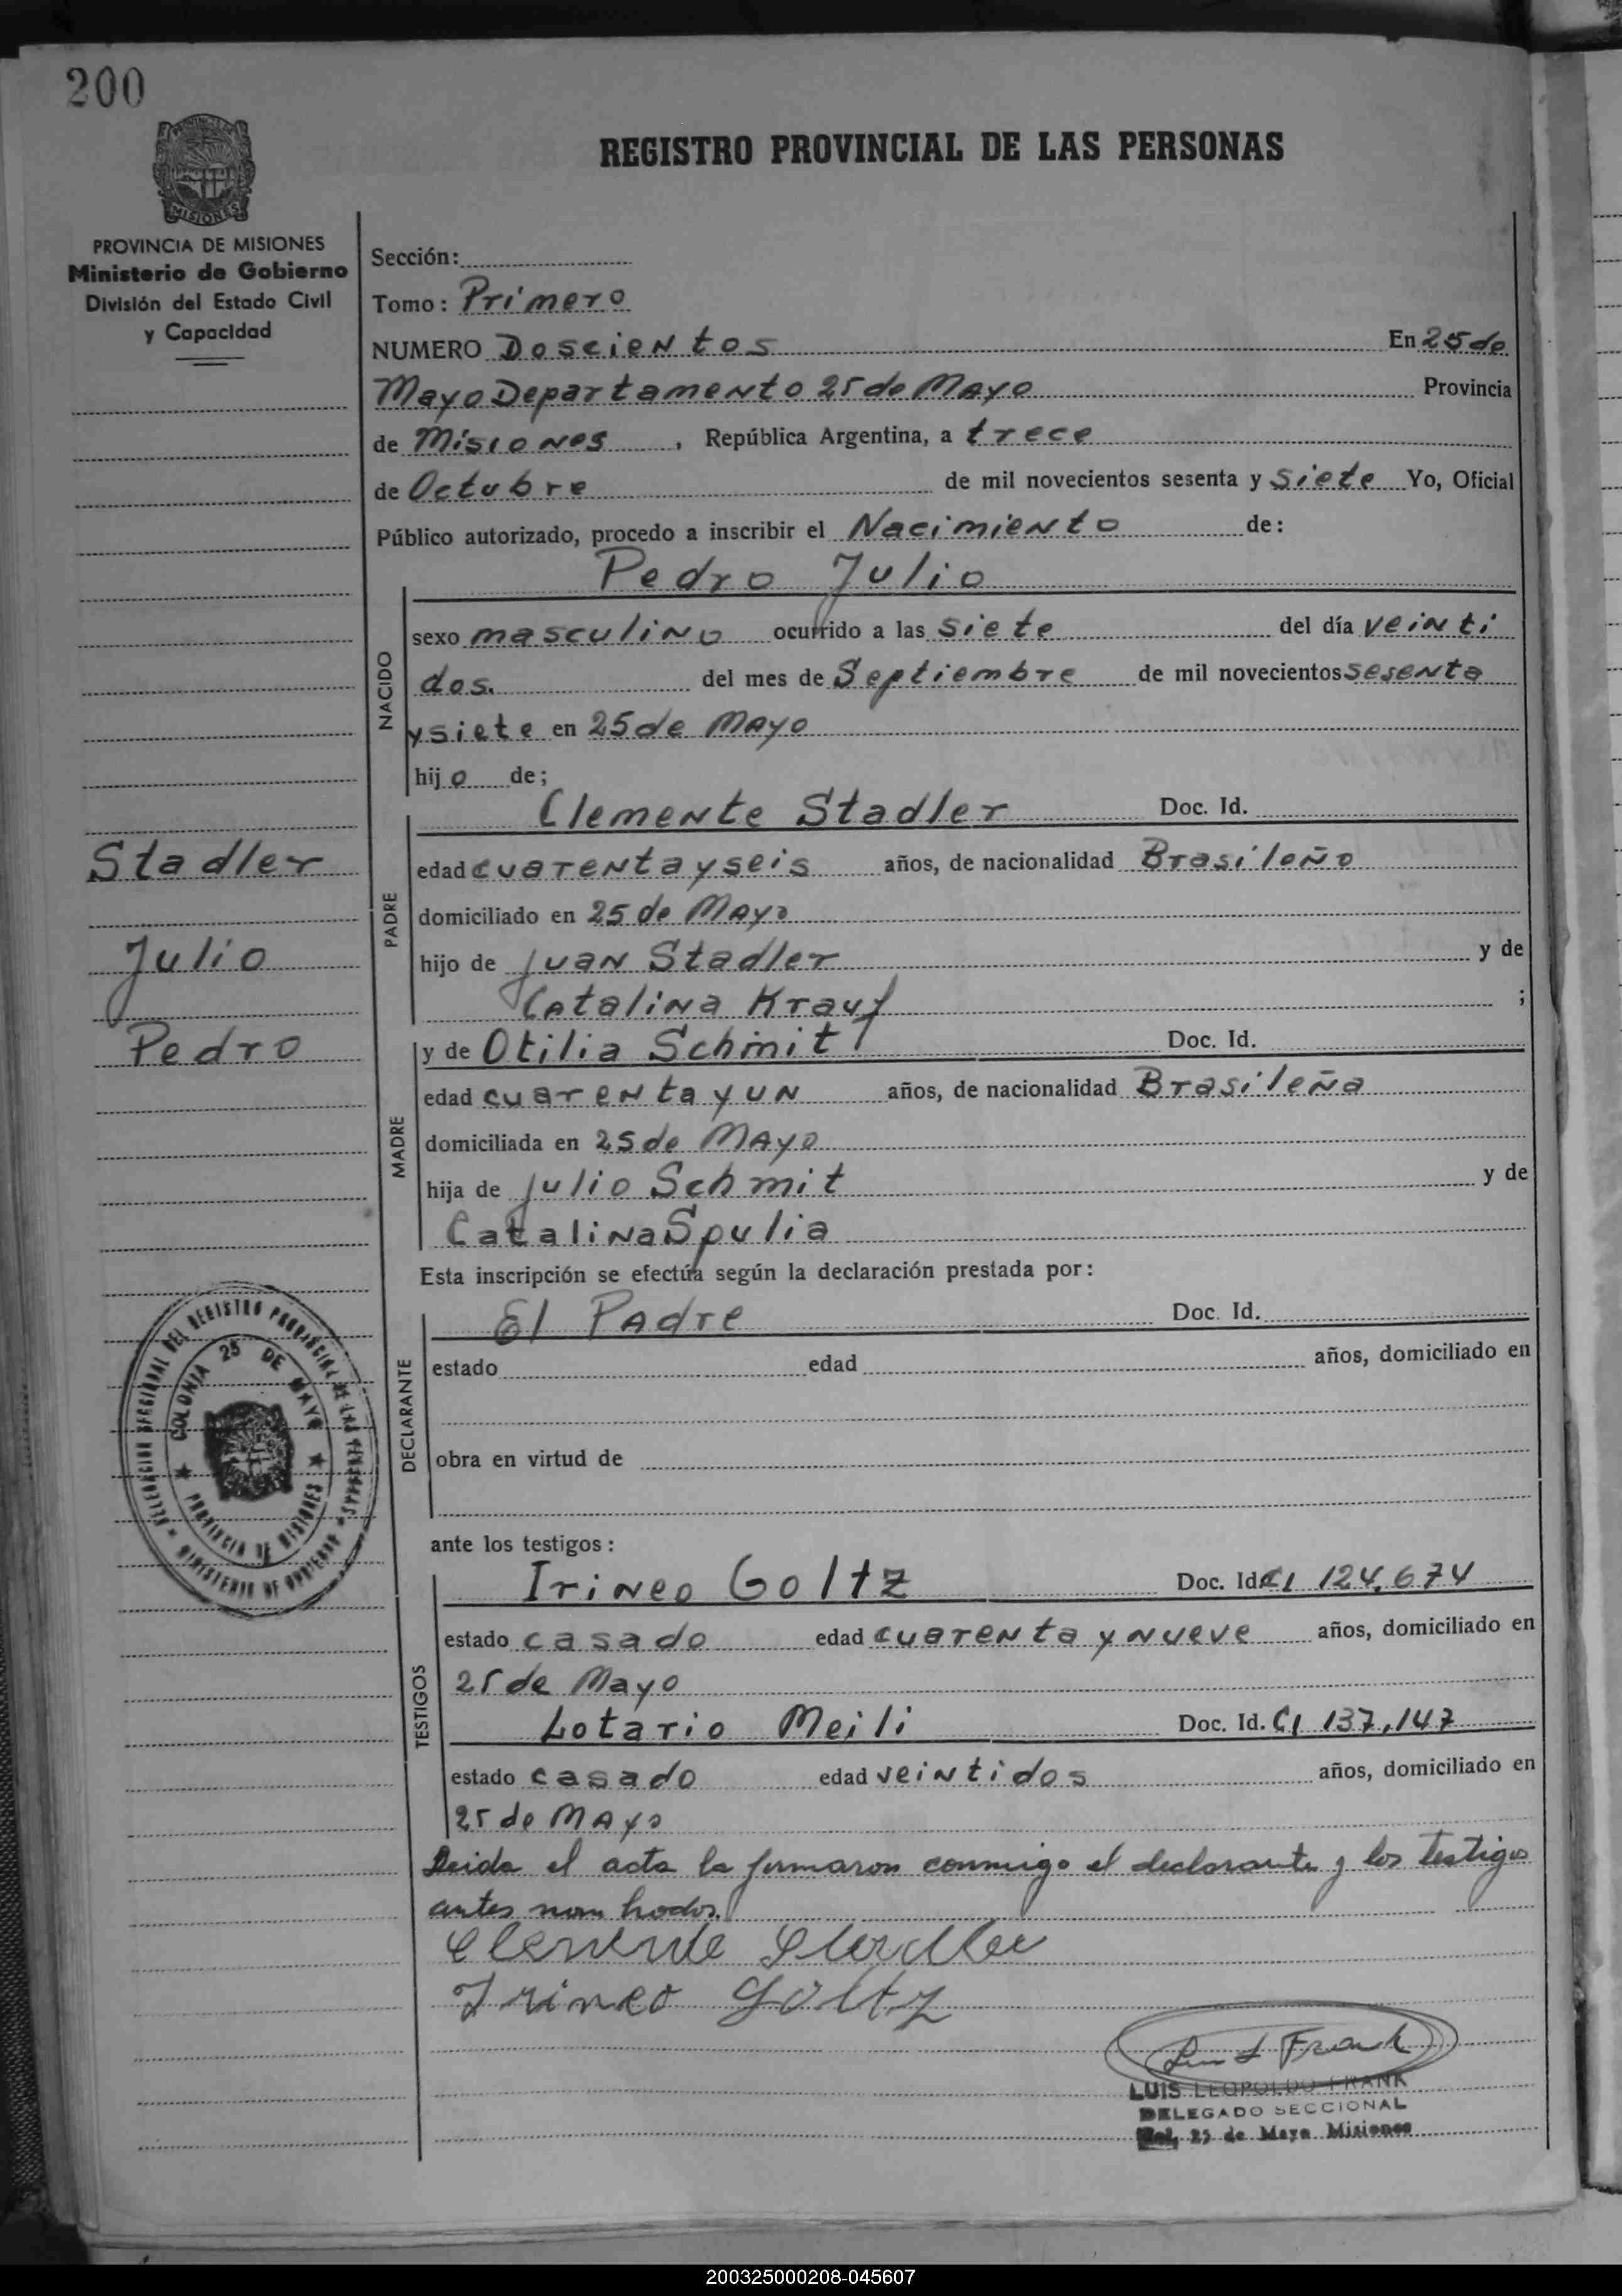 200
REGISTRO PROVINCIAL DE LAS PERSONAS
MISIONES
PROVINCIA DE MISIONES
Ministerio de Gobierno
División del Estado Civil
y Capacidad
Sección:
Tomo: Primero
NUMERO Doscientos En 25 de
Mayo Departamento 25 de Mayo Provincia
de Misiones, República Argentina, a trece
de Octubre de mil novecientos sesenta y siete Yo, Oficial
Público autorizado, procedo a inscribir el Nacimiento de:
Pedro Julio
NACIDO
sexo masculino ocurrido a las siete del día veinti
dos. del mes de Septiembre de mil novecientos sesenta
y siete en 25 de Mayo
hijo de;
Stadler
Julio
Pedro
PADRE
Clemente Stadler Doc. Id.
edad cuarenta y seis años, de nacionalidad Brasileño
domiciliado en 25 de Mayo
hijo de Juan Stadler y de
Catalina Krauf ;
MADRE
y de Otilia Schmit Doc. Id.
edad cuarenta y un años, de nacionalidad Brasileña
domiciliada en 25 de Mayo
hija de Julio Schmit y de
Catalina Spulia
Esta inscripción se efectúa según la declaración prestada por:
DECLARANTE
El Padre Doc. Id.
estado edad años, domiciliado en
obra en virtud de
DELEGACION SECCIONAL DEL REGISTRO PROVINCIAL DE LAS PERSONAS
MINISTERIO DE GOBIERNO
COLONIA 25 DE MAYO
PROVINCIA DE MISIONES
ante los testigos:
TESTIGOS
Irineo Goltz Doc. Id. CI 124.674
estado casado edad cuarenta y nueve años, domiciliado en
25 de Mayo
Lotario Meili Doc. Id. CI 137,147
estado casado edad veintidos años, domiciliado en
25 de Mayo
Leida el acta la firmaron conmigo el declarante y los testigos
antes nombrados.
Clemente Stadler
Irineo Goltz
Luis L Frank
LUIS LEOPOLDO FRANK
DELEGADO SECCIONAL
Col. 25 de Mayo Misiones
200325000208-045607